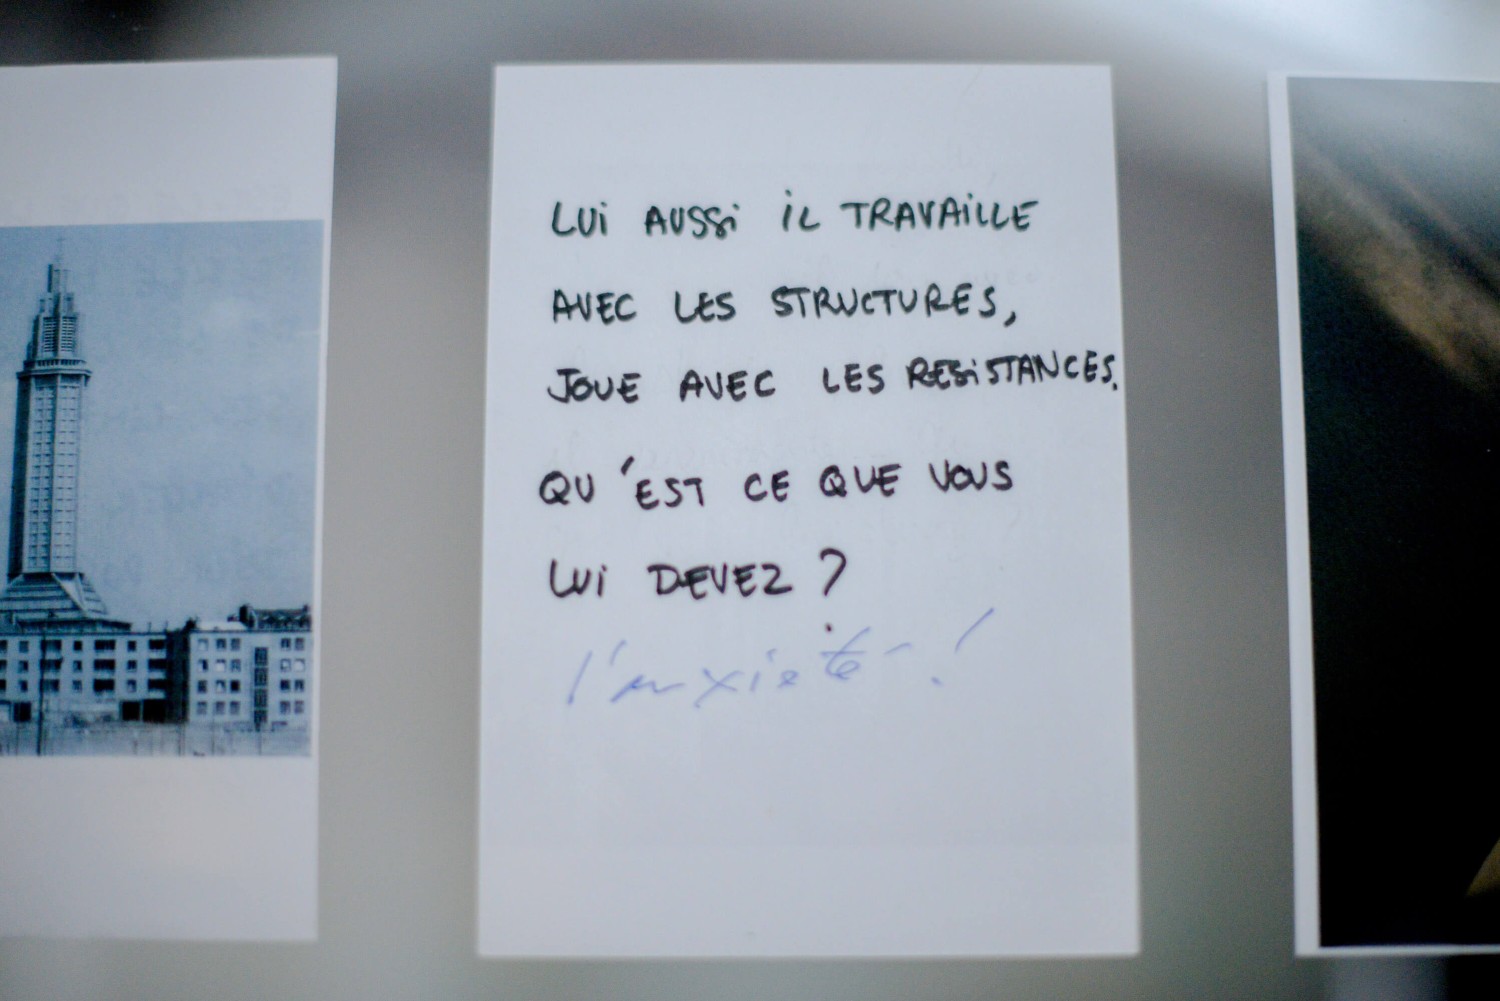 LUI AUSSI IL TRAVAILLE
AVEC LES STRUCTURES,
JOUE AVEC LES RESISTANCES.
QU'EST CE QUE VOUS
LUI DEVEZ ?
l'anxiété !